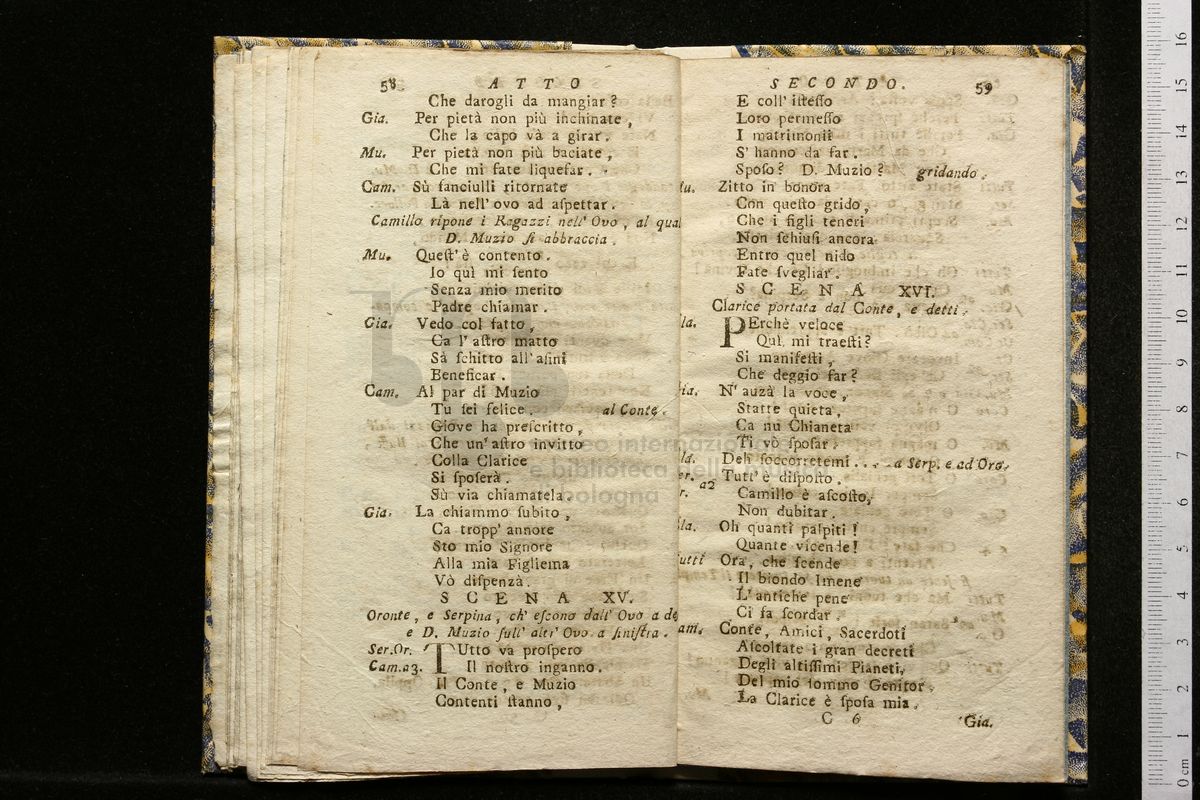 58 ATTO
Che darogli da mangiar?
Gia. Per pietà non più inchinate,
Che la capo và a girar.
Mu. Per pietà non più baciate,
Che mi fate liquefar.
Cam. Sù fanciulli ritornate
Là nell' ovo ad aſpettar.
Camillo ripone i Ragazzi nell' Ovo, al qual
D. Muzio ſi abbraccia.
Mu. Queſt' è contento.
Io quì mi ſento
Senza mio merito
Padre chiamar.
Gia. Vedo col fatto,
Ca l' aſtro matto
Sà ſchitto all' aſini
Beneficar.
Cam. Al par di Muzio
Tu ſei felice. al Conte.
Giove ha preſcritto,
Che un' aſtro invitto
Colla Clarice
Si ſpoſerà.
Sù via chiamatela.
Gia. La chiammo ſubito,
Ca tropp' annore
Sto mio Signore
Alla mia Figliema
Vò diſpenzà.
SCENA XV.
Oronte, e Serpina, ch' eſcono dall' Ovo a de
e D. Muzio ſull' altr' Ovo a ſiniſtra.
Ser.Or. TUtto va proſpero
Cam.a3. Il noſtro inganno.
Il Conte, e Muzio
Contenti ſtanno,
SECONDO. 59
E coll' iſteſſo
Loro permeſſo
I matrimonii
S' hanno da far.
Spoſo? D. Muzio? gridando.
Mu. Zitto in bonora
Con queſto grido,
Che i figli teneri
Non ſchiuſi ancora
Entro quel nido
Fate ſvegliar.
SCENA XVI.
Clarice portata dal Conte, e detti.
la. PErchè veloce
Quì mi traeſti?
Si manifeſti,
Che deggio far?
ia. N' auzà la voce,
Statte quieta,
Ca nu Chianeta
Ti vò ſpoſar.
la. Deh ſoccorretemi.... a Serp. e ad Oro.
er. Tutt' è diſpoſto.
r. a2 Camillo è aſcoſto,
Non dubitar.
la. Oh quanti palpiti!
Quante vicende!
utti Ora, che ſcende
Il biondo Imene
L' antiche pene
Ci fa ſcordar.
am. Conte, Amici, Sacerdoti
Aſcoltate i gran decreti
Degli altiſſimi Pianeti,
Del mio ſommo Genitor.
La Clarice è ſpoſa mia.
C 6 Gia.
museo internazionale
e biblioteca della musica
di bologna